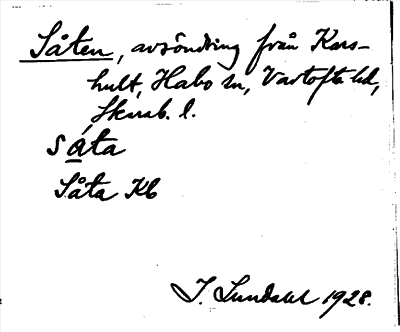 Såten, avsöndring från Kars-
hult, Habo sn, Vartofta hd,
Skarab. l.
såta
Såta Kb
I. Lundahl 1928.